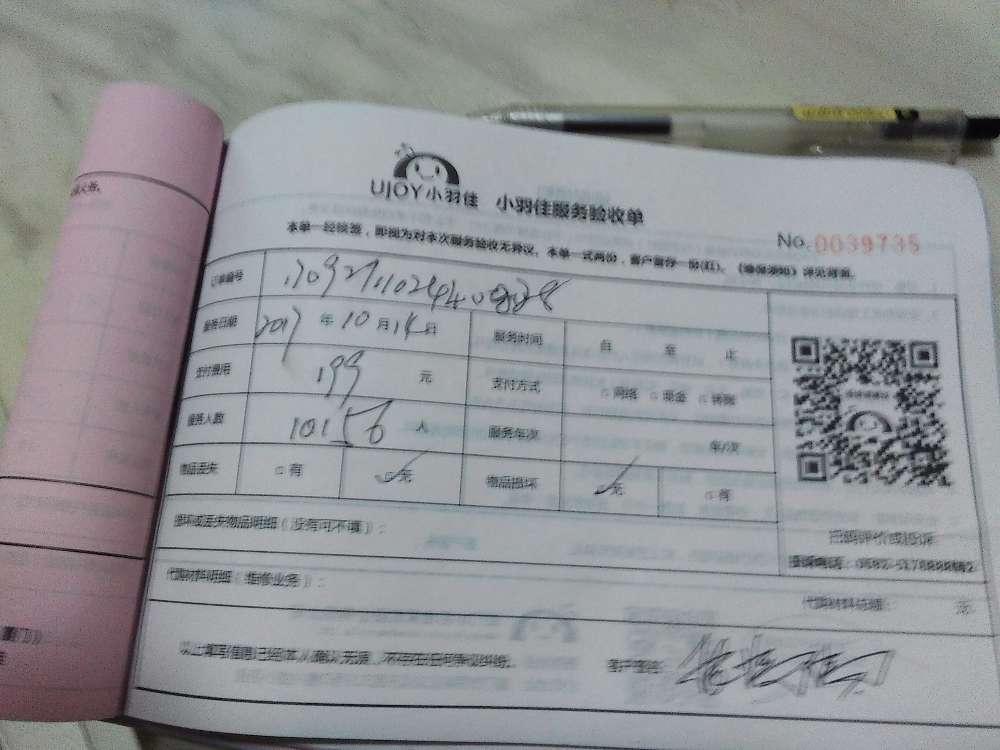 UJOY小羽佳 小羽佳服务验收单
本单一经签署，即视为对本次服务验收无异议。本单一式两份，客户留存一份(红)。
No. 0039735
订单编号
服务日期 2017年10月14日 服务时间 自 至 止
支付费用 199 元 支付方式 □网络 □现金 □转账
服务人数 10156 人 服务年次 年/次
物品丢失 □有 □无 物品损坏 □无 □有
损坏或丢失物品明细(没有可不填)：
扫码评价或投诉
代购材料明细(维修业务)：
代购材料总额： 元
以上填写信息已经本人确认无误，不存在任何争议纠纷。 客户签名：